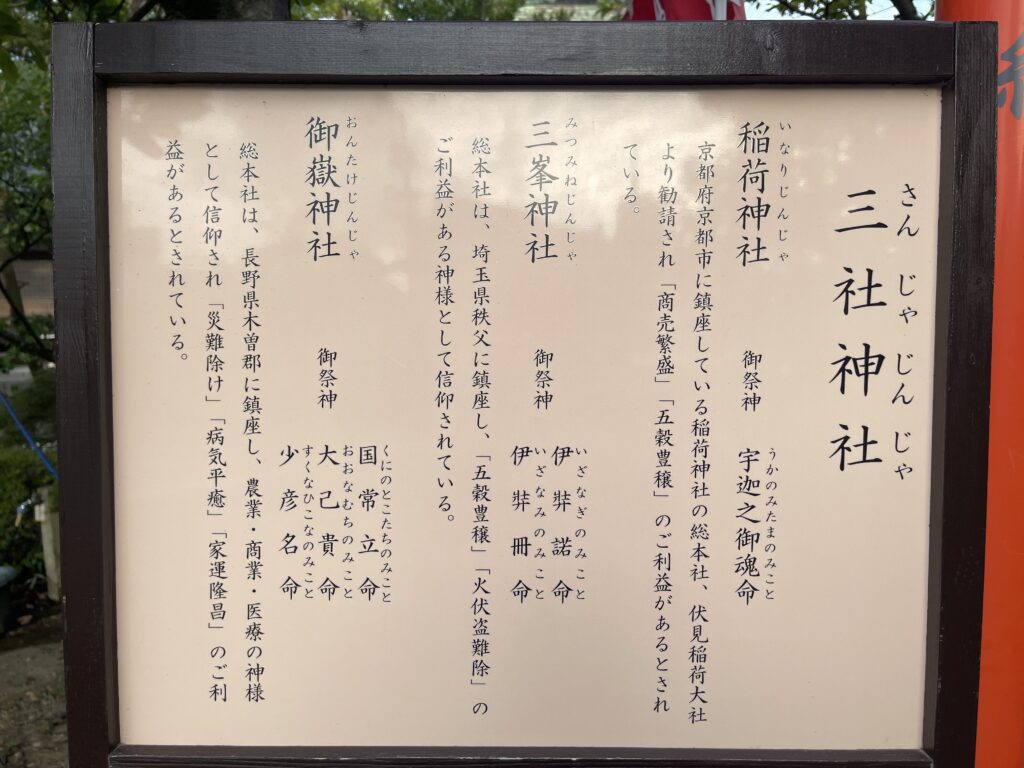 三社神社
さんじゃじんじゃ
稲荷神社
いなりじんじゃ
御祭神
宇迦之御魂命
うかのみたまのみこと
京都府京都市に鎮座している稲荷神社の総本社、伏見稲荷大社
より勧請され「商売繁盛」「五穀豊穣」のご利益があるとされ
ている。
三峯神社
みつみねじんじゃ
御祭神
伊弉諾命
いざなぎのみこと
伊弉冊命
いざなみのみこと
総本社は、埼玉県秩父に鎮座し、「五穀豊穣」「火伏盗難除」の
ご利益がある神様として信仰されている。
御嶽神社
おんたけじんじゃ
御祭神
国常立命
くにのとこたちのみこと
大己貴命
おおなむちのみこと
少彦名命
すくなひこなのみこと
総本社は、長野県木曽郡に鎮座し、農業・商業・医療の神様
として信仰され「災難除け」「病気平癒」「家運隆昌」のご利
益があるとされている。